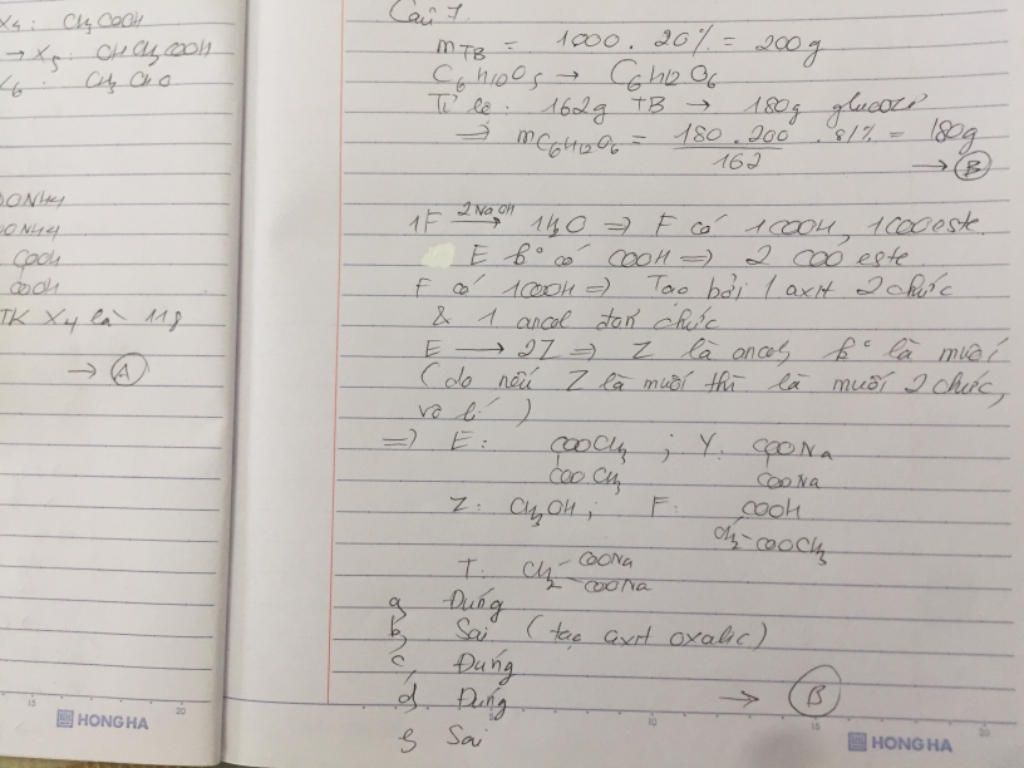 X4: CH3COOH
→ X5: CHCH2COOH
X6: CH3CHO
OONH4
OONH4
COOH
COOH
TK X4 là 118
→ A
Câu 7.
mTB = 1000 . 20% = 200g
C6H10O5 → C6H12O6
Tỉ lệ: 162g TB → 180g glucozơ
⇒ mC6H12O6 = 180.200 / 162 . 81% = 180g
→ B
1F 2NaOH → 1H2O ⇒ F có 1COOH, 1COO este.
E k° có COOH ⇒ 2 COO este
F có 1COOH ⇒ Tạo bởi 1 axit 2 chức
& 1 ancol đơn chức
E → 2Z ⇒ Z là ancol, k° là muối
(do nếu Z là muối thì là muối 2 chức,
vô lí)
⇒ E: COOCH3 ; Y: COONa
COOCH3 COONa
Z: CH3OH ; F: COOH
CH2-COOCH3
T: CH2 -COONa
-COONa
a, Đúng
b, Sai (tạo axit oxalic)
c, Đúng
d, Đúng → B
e, Sai
15 20
HONG HA
10 15 20
HONG HA